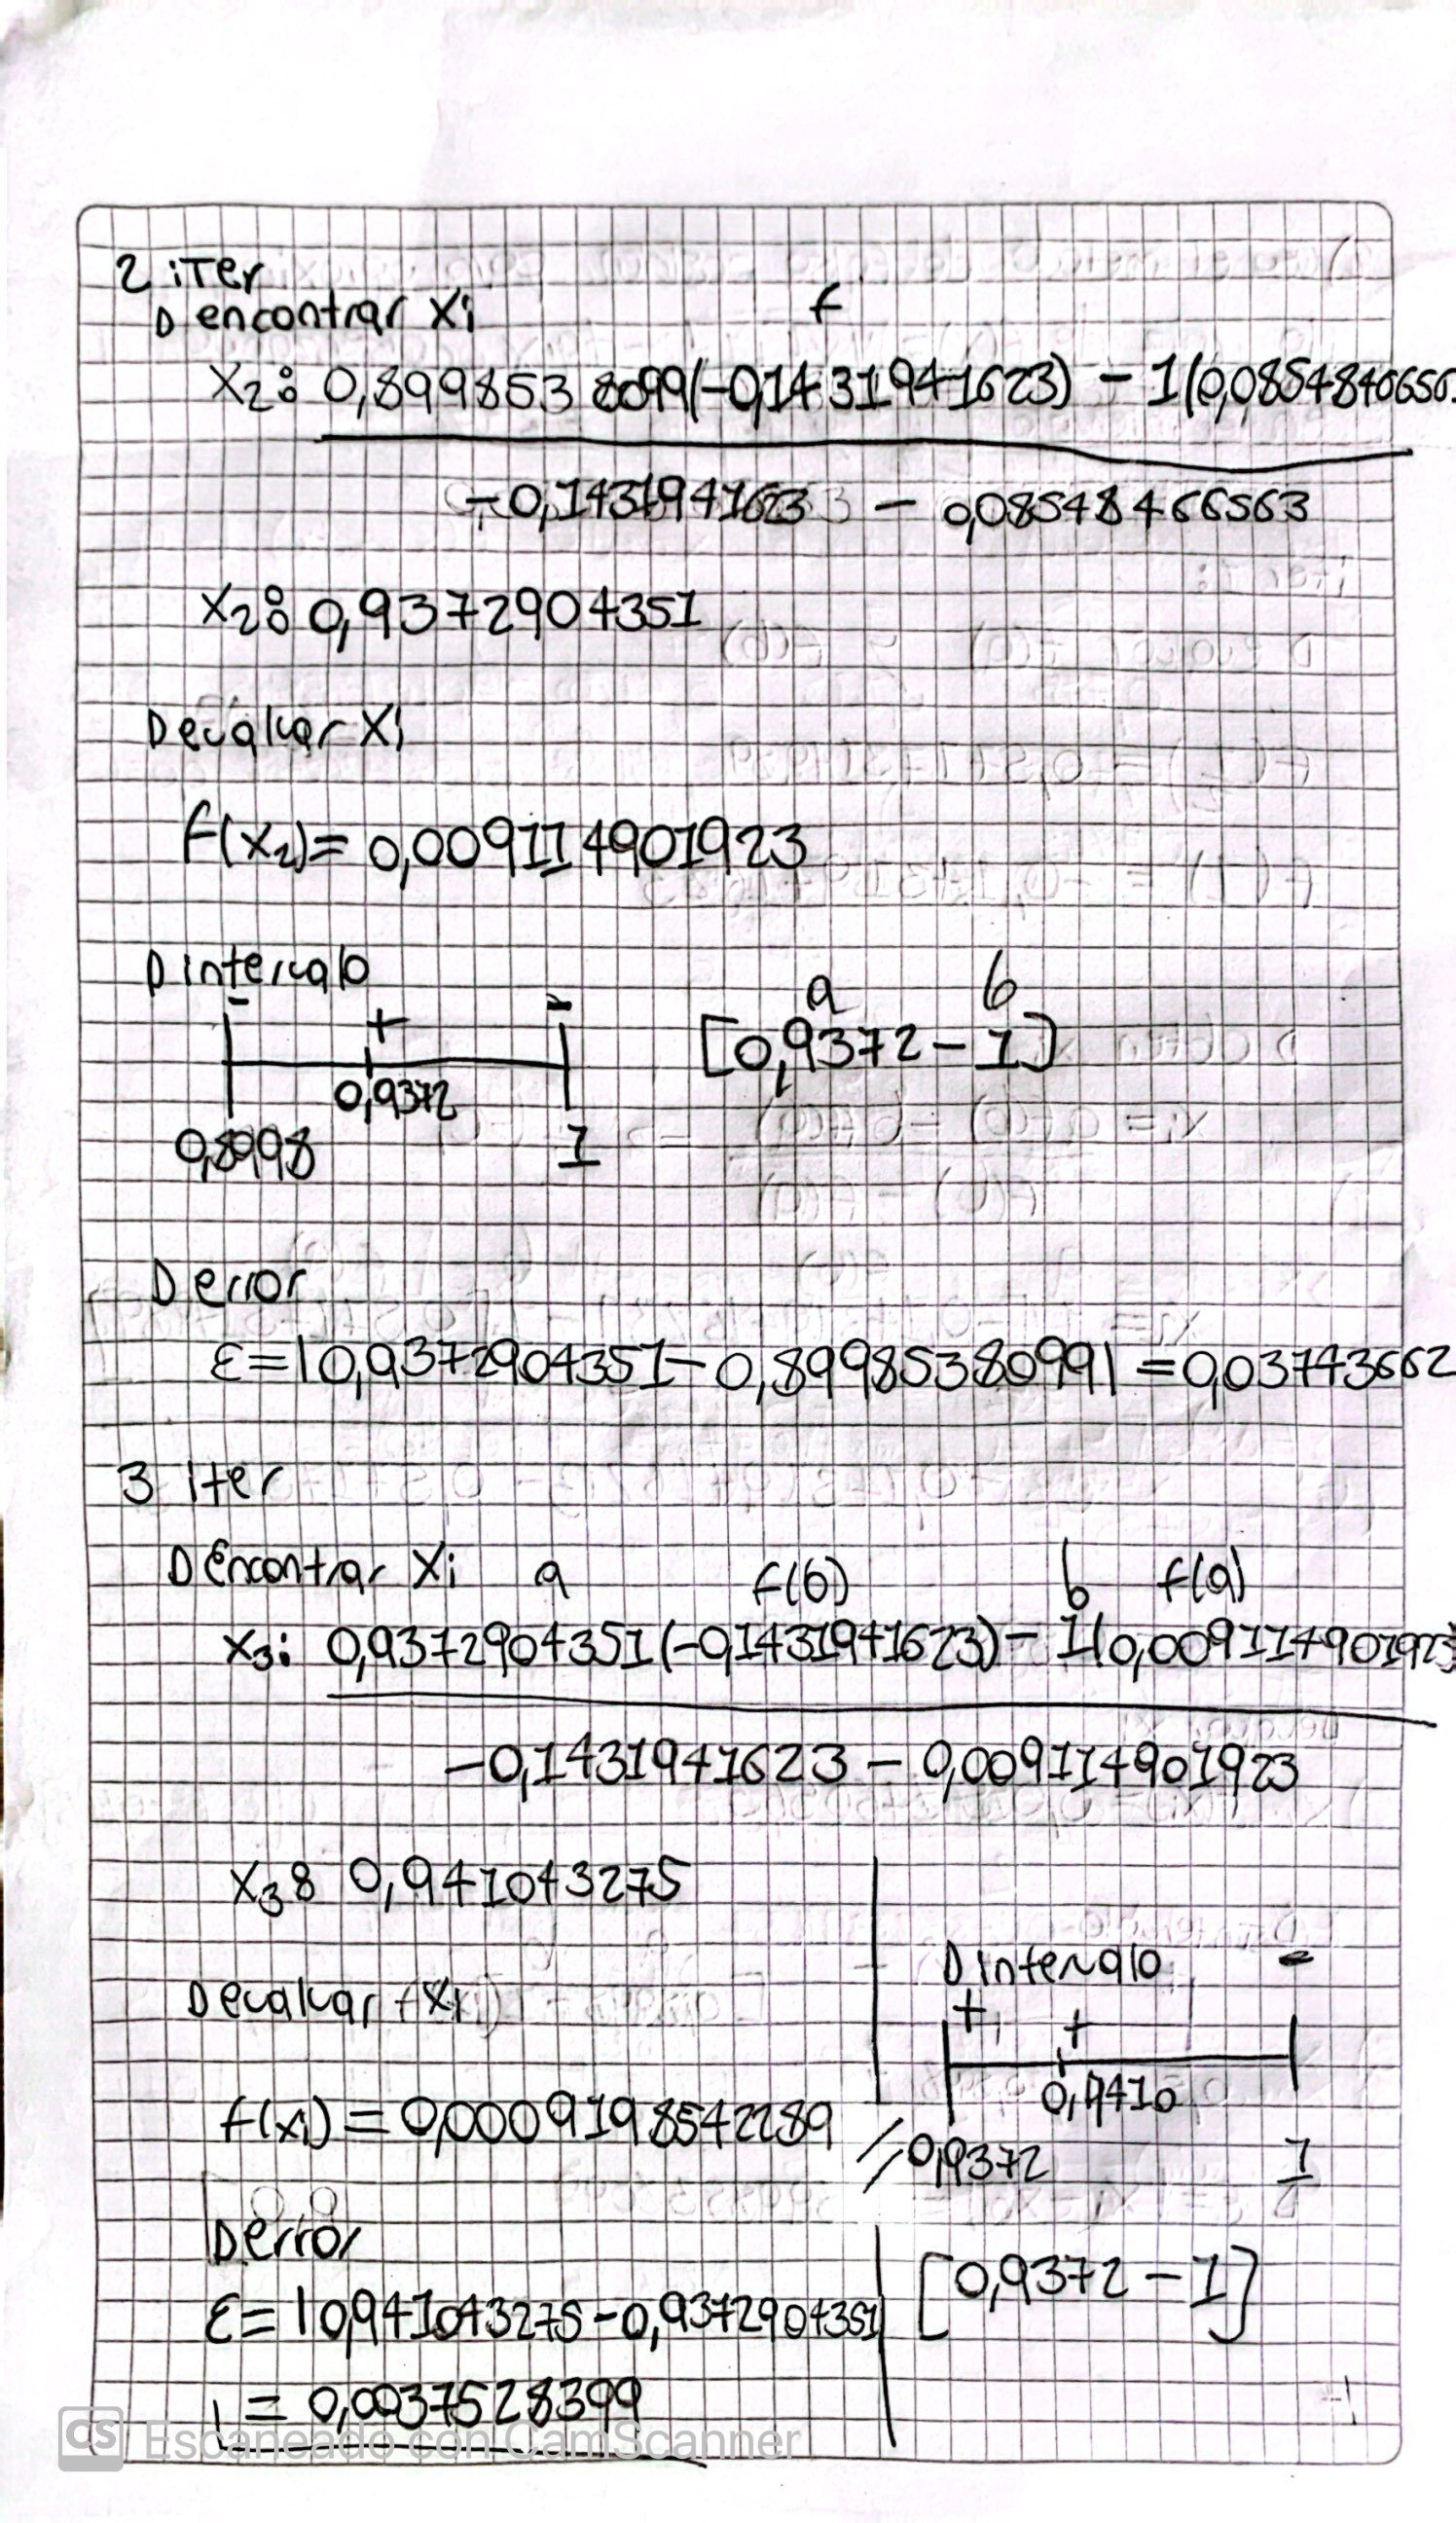 2 iTer
D encontrar Xi
f
X2: 0,8998538099(-0,1431941623) - 1(0,0854846656
-0,1431941623 - 0,08548466563
X2: 0,9372904351
D evaluar Xi
f(x2)= 0,009114901923
D intervalo
- + -
0,8998 0,9372 1
a b
[0,9372 - 1]
D error
ε=|0,9372904351-0,8998538099|=0,03743662
3 iter
D Encontrar Xi a f(b) b f(a)
X3: 0,9372904351(-0,1431941623)- 1(0,009114901923
-0,1431941623 - 0,009114901923
X3: 0,941043275
D evaluar Xi
f(xi) = 0,0009198542289
D intervalo
+ + -
0,9372 0,9410 1
[0,9372 - 1]
D error
ε= |0,941043275-0,9372904351|
= 0,0037528399
CS Escaneado con CamScanner